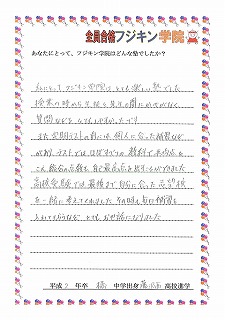 全員合格フジキン学院
あなたにとって、フジキン学院はどんな塾でしたか?
私にとって、フジキン学院は、とても楽しい塾でした。
授業の時から生徒と先生の間にかべがなく、
質問などをしやすかったです。
また、定期テストの前には、個人に合った補習など
があり、テストでは、ほぼすべての教科で
こえ、総合の点数も自己最高点を出すことができました。
高校受験では最後まで自分に合った志望校
を一緒に考えてくれました。その時も毎日補習を
入れてもらうなど、とてもお世話になりました。
平成 年卒 橘 中学出身 高校進学